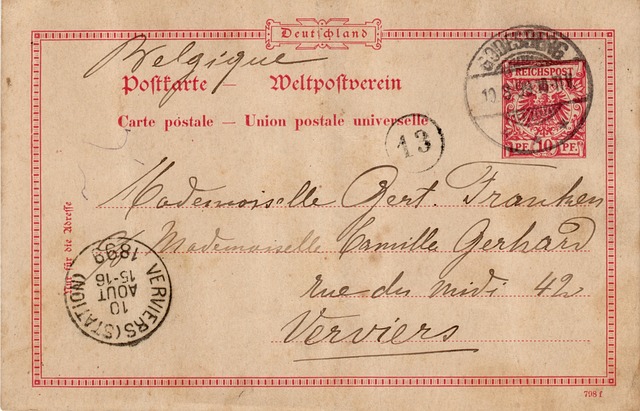 Deutschland
Belgique
Postkarte — Weltpostverein
Carte postale — Union postale universelle
GODESBERG
REICHSPOST
PF. 10 PF.
13
Nur für die Adresse
Mademoiselle Gert. Franken
Mademoiselle Camille Gerhard
rue du midi 42
Verviers
VERVIERS (STATION)
10
AOUT
15-16
1899
798 f